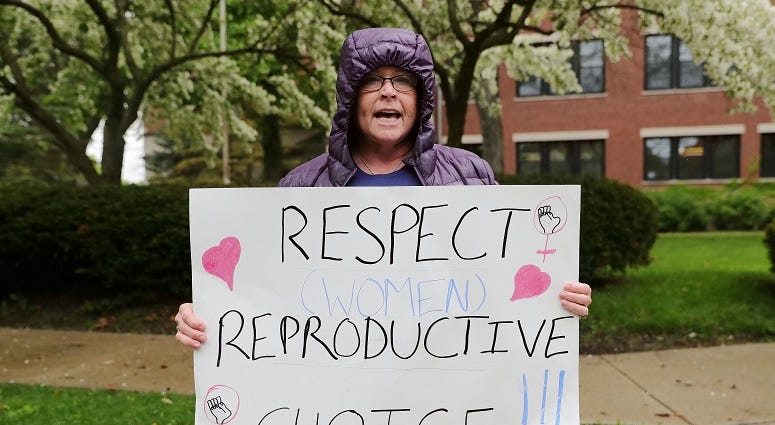 RESPECT
(WOMEN)
REPRODUCTIVE
CHOICE !!!